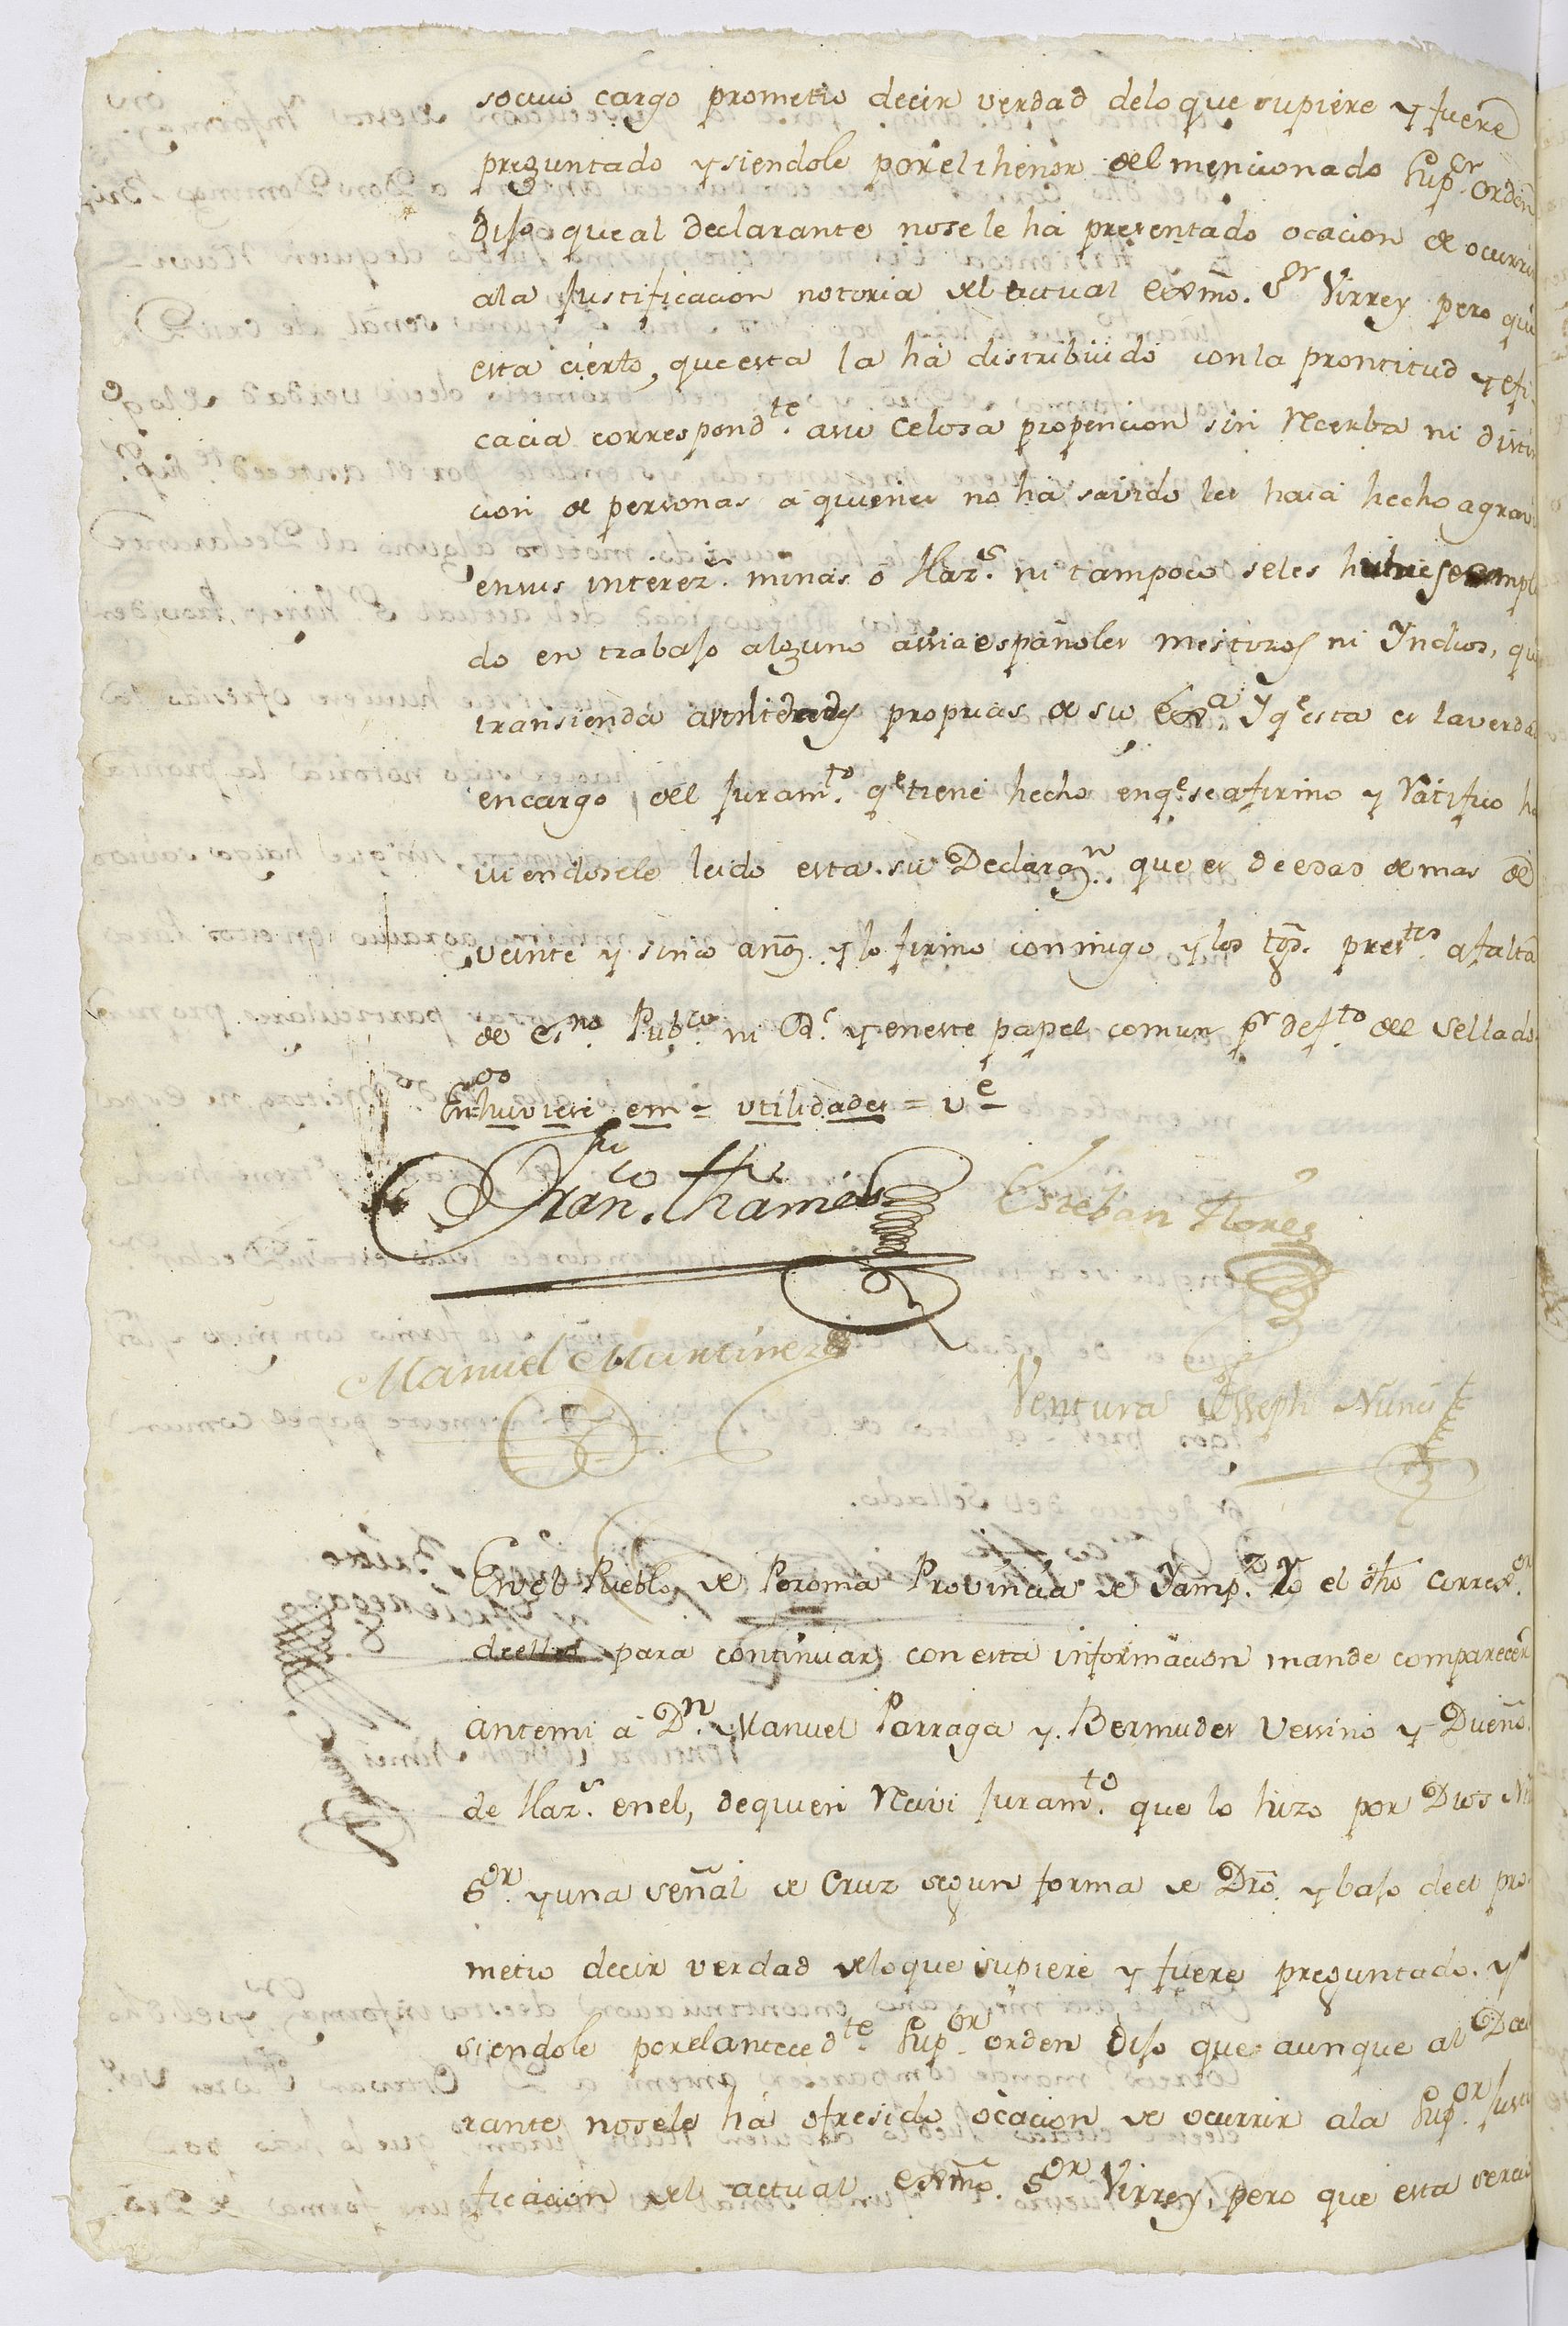 so cuio cargo prometio decir verdad delo que supiere y fuere
preguntado y siendole por el thenor del mencionado Sup.or orden
Dijo que al declarante no se le ha presentado ocacion de ocurrir
ala Justificacion notoria del actual Exmo. S.or Virrey pero que
esta cierto, que esta la ha distribuido con la prontitud y efi
cacia correspond.te a su Celosa propencion sin Recerba ni distin
cion de personas a quienes no ha savido les haia hecho agravi
en sus interez.s minas ó Haz.s ni tampoco seles huviese emplea
do en trabajo alguno assia españoles mestizos ni Yndios, que
transienda a utilidades propias de su Ex.a Y q.e esta es la verdad
en cargo del Juram.to q.e tiene hecho en q.e se afirmo y Ratifico ha
viendosele leido esta su Declaraz.n que es de edad de mas de
veinte y sinco años y lo firmo conmigo y los tgos. pres.tes a falta
de Es.no Pub.co ni R.l y en este papel comun p.r def.to del Sellado
Enm.do huviese em = utilidades = v.e
Fran.co Thamés
Esteban Flores
Manuel Martinez
Ventura Joseph Nuñes
En el Pueblo de Poroma Provincia de Yamp.z Yo el dho Correx.or
de ella para continuar con esta informacion mande comparecer
antemi á D.n Manuel Parraga y Bermudes Vessino y Dueño
de Haz.s en el, de quien Recivi Juram.to que lo hizo por Dios N
S.or y una señal de Cruz segun forma de Dro. y bajo de el pro
metio decir verdad delo que supiere y fuere preguntado. y
siendole por el anteced.te Sup.or orden Dijo que aunque al Decl
rante no sele há ofresido ocacion de ocurrir ala Sup.or Justi
ficacion del actual Exmo. S.or Virrey, pero que esta serci